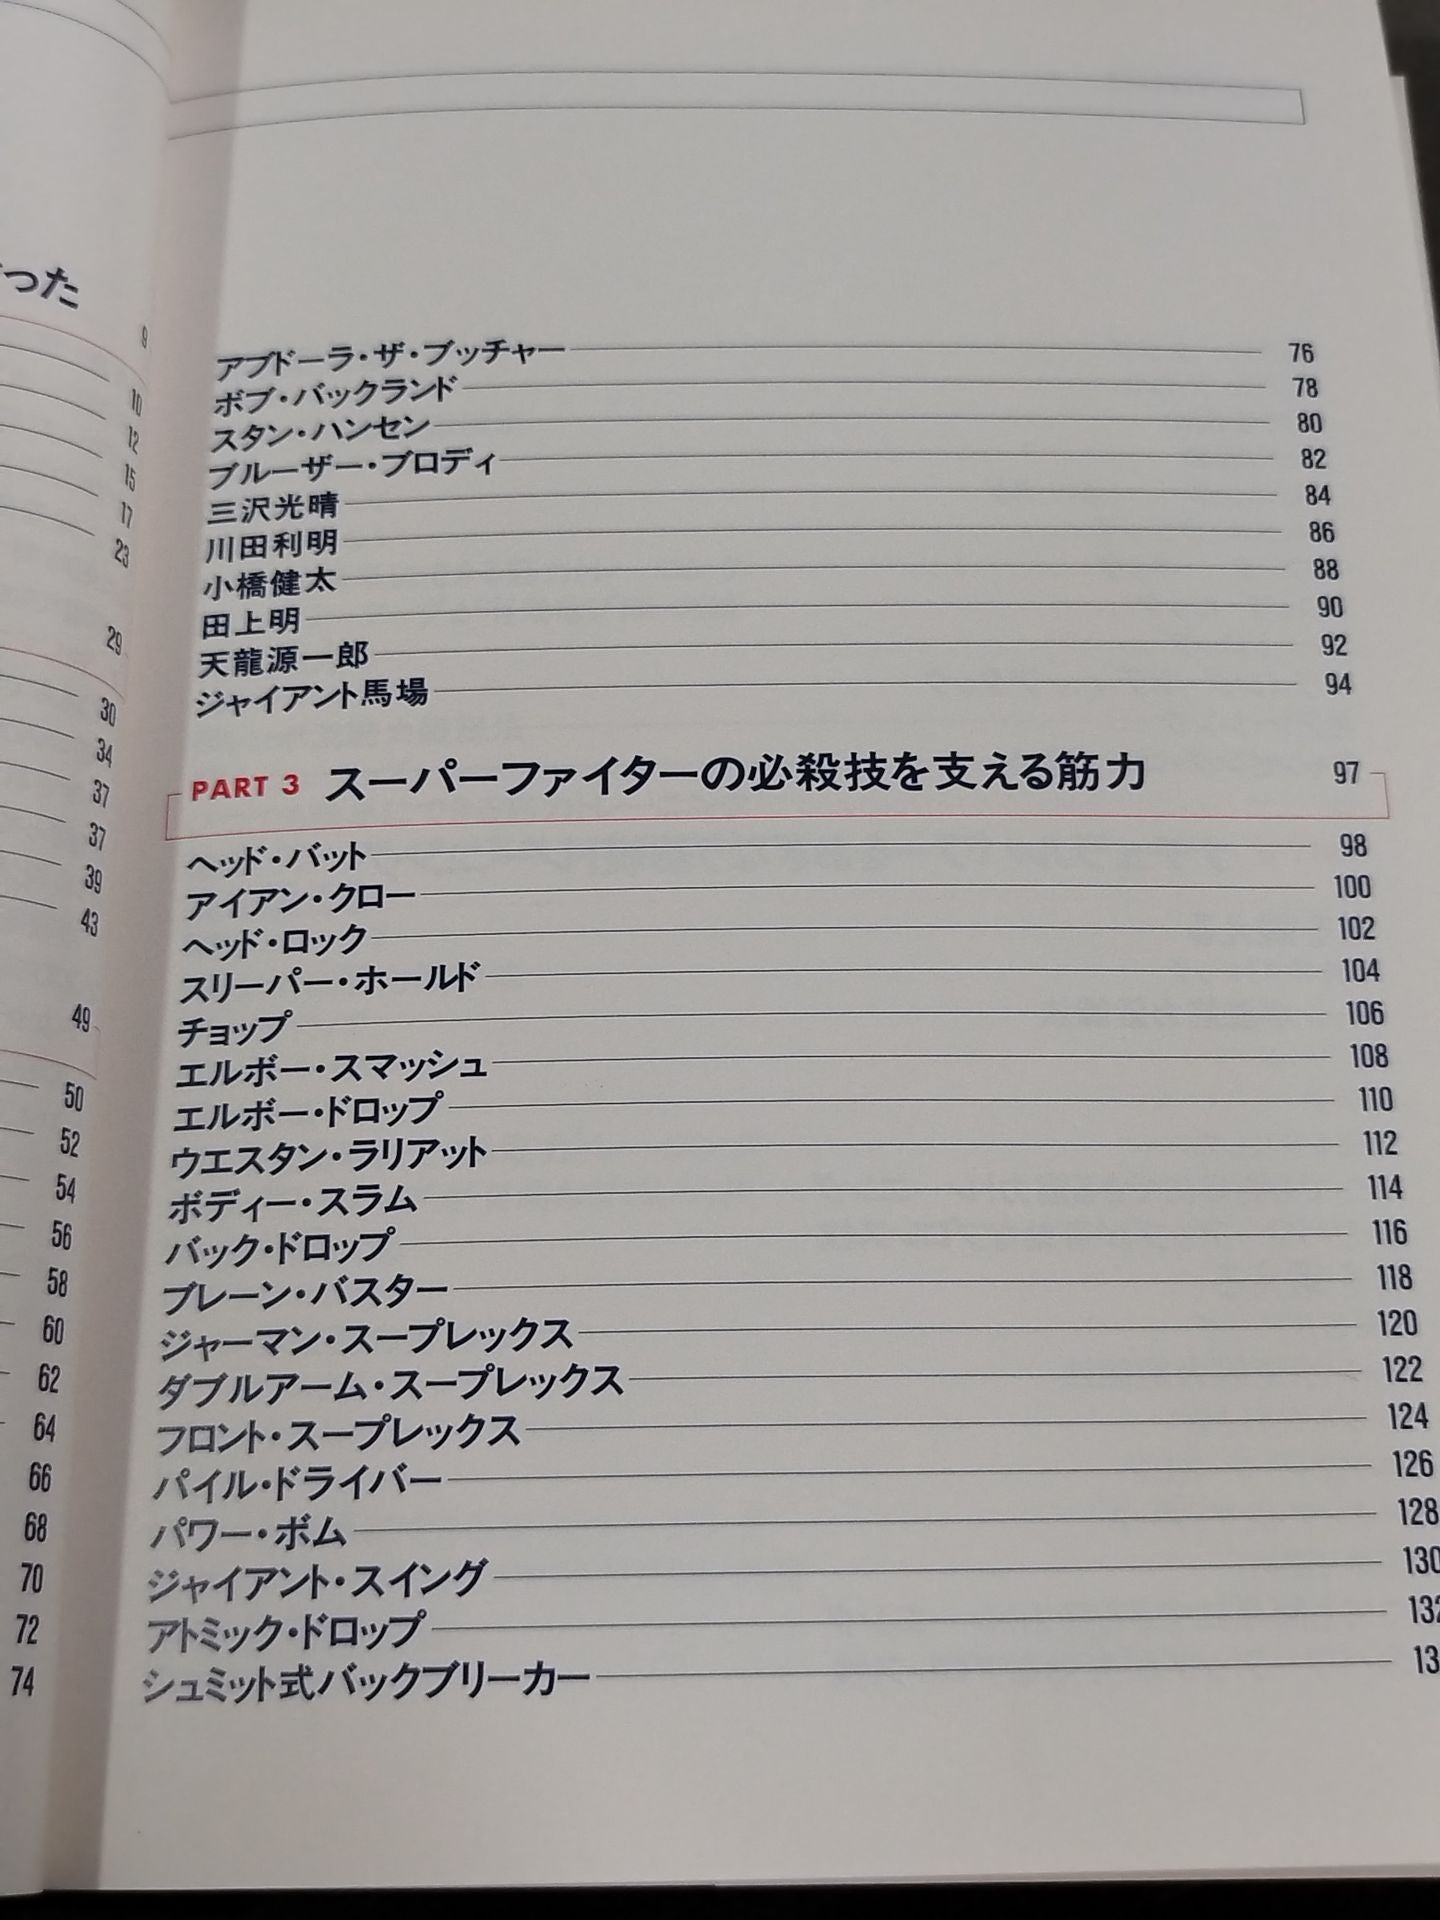 った
9
10
12
15
17
23
29
30
34
37
37
39
43
49
50
52
54
56
58
60
62
64
66
68
70
72
74
アブドーラ・ザ・ブッチャー 76
ボブ・バックランド 78
スタン・ハンセン 80
ブルーザー・ブロディ 82
三沢光晴 84
川田利明 86
小橋健太 88
田上明 90
天龍源一郎 92
ジャイアント馬場 94
PART 3 スーパーファイターの必殺技を支える筋力 97
ヘッド・バット 98
アイアン・クロー 100
ヘッド・ロック 102
スリーパー・ホールド 104
チョップ 106
エルボー・スマッシュ 108
エルボー・ドロップ 110
ウエスタン・ラリアット 112
ボディー・スラム 114
バック・ドロップ 116
ブレーン・バスター 118
ジャーマン・スープレックス 120
ダブルアーム・スープレックス 122
フロント・スープレックス 124
パイル・ドライバー 126
パワー・ボム 128
ジャイアント・スイング 130
アトミック・ドロップ 132
シュミット式バックブリーカー 13